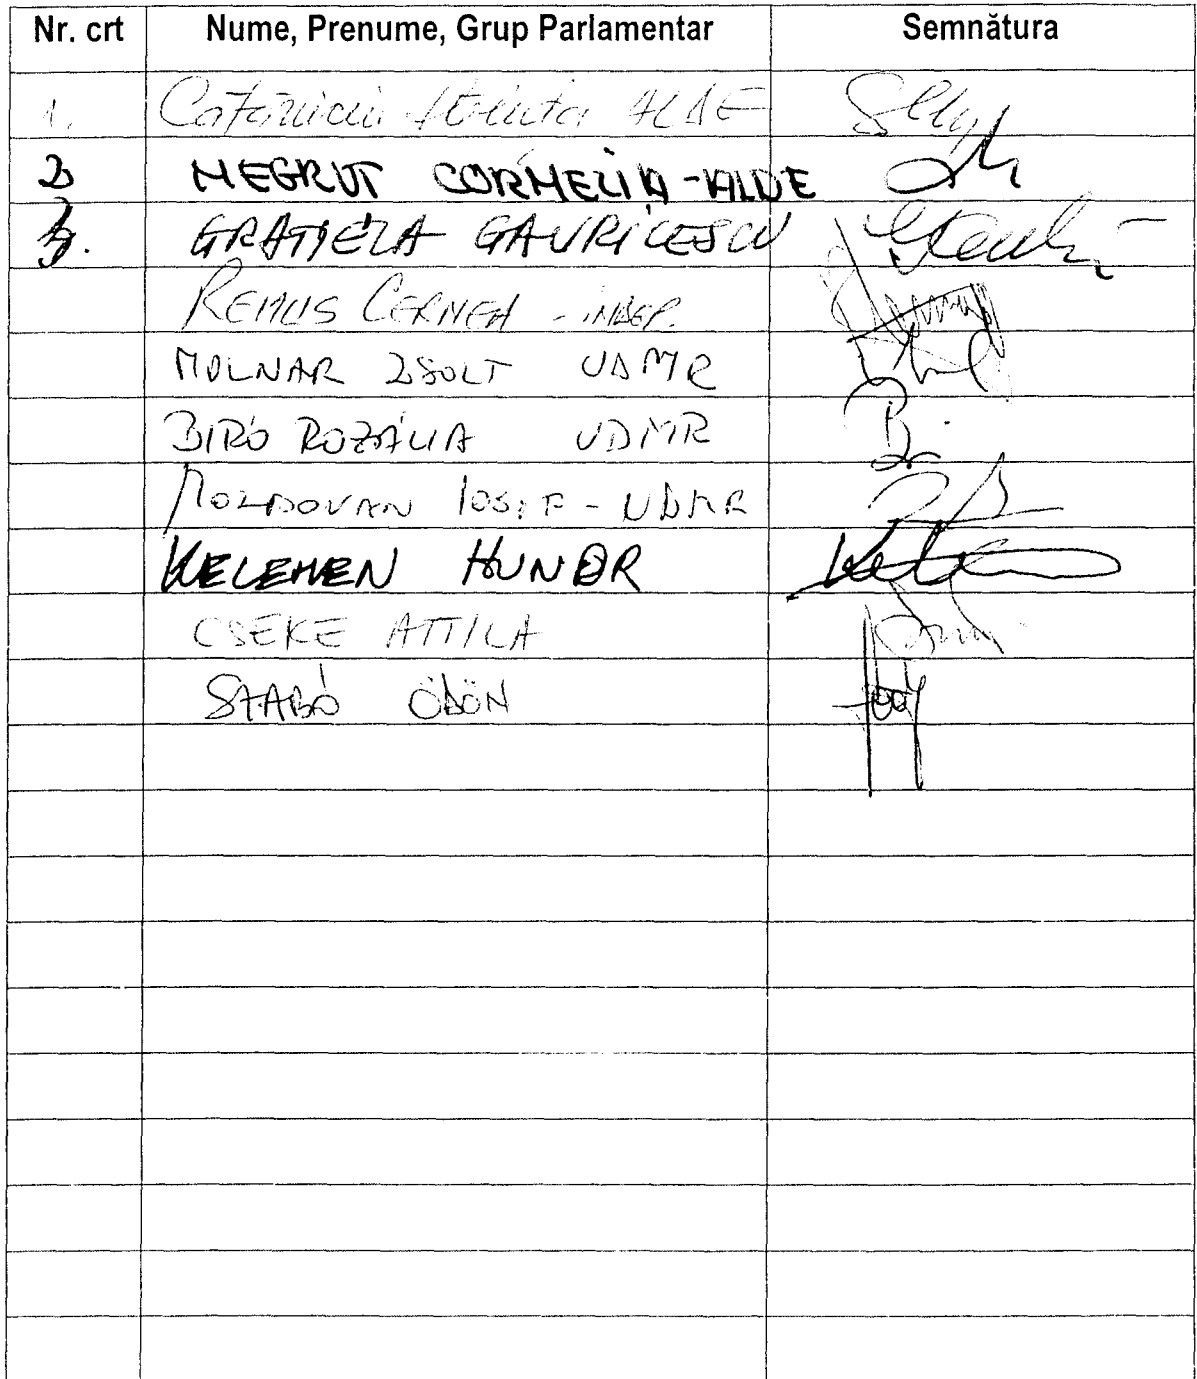 Nr. crt Nume, Prenume, Grup Parlamentar Semnătura
1. Cătăniciu Steluța ALDE
2 NEGRUT CORNELIA - ALDE
3. GRAȚIELA GAVRILESCU
REMUS CERNEA - INDEP.
MOLNAR ZSOLT UDMR
BIRÓ ROZÁLIA UDMR
MOLDOVAN IOSIF - UDMR
KELEMEN HUNOR
CSEKE ATTILA
SZABÓ ÖDÖN